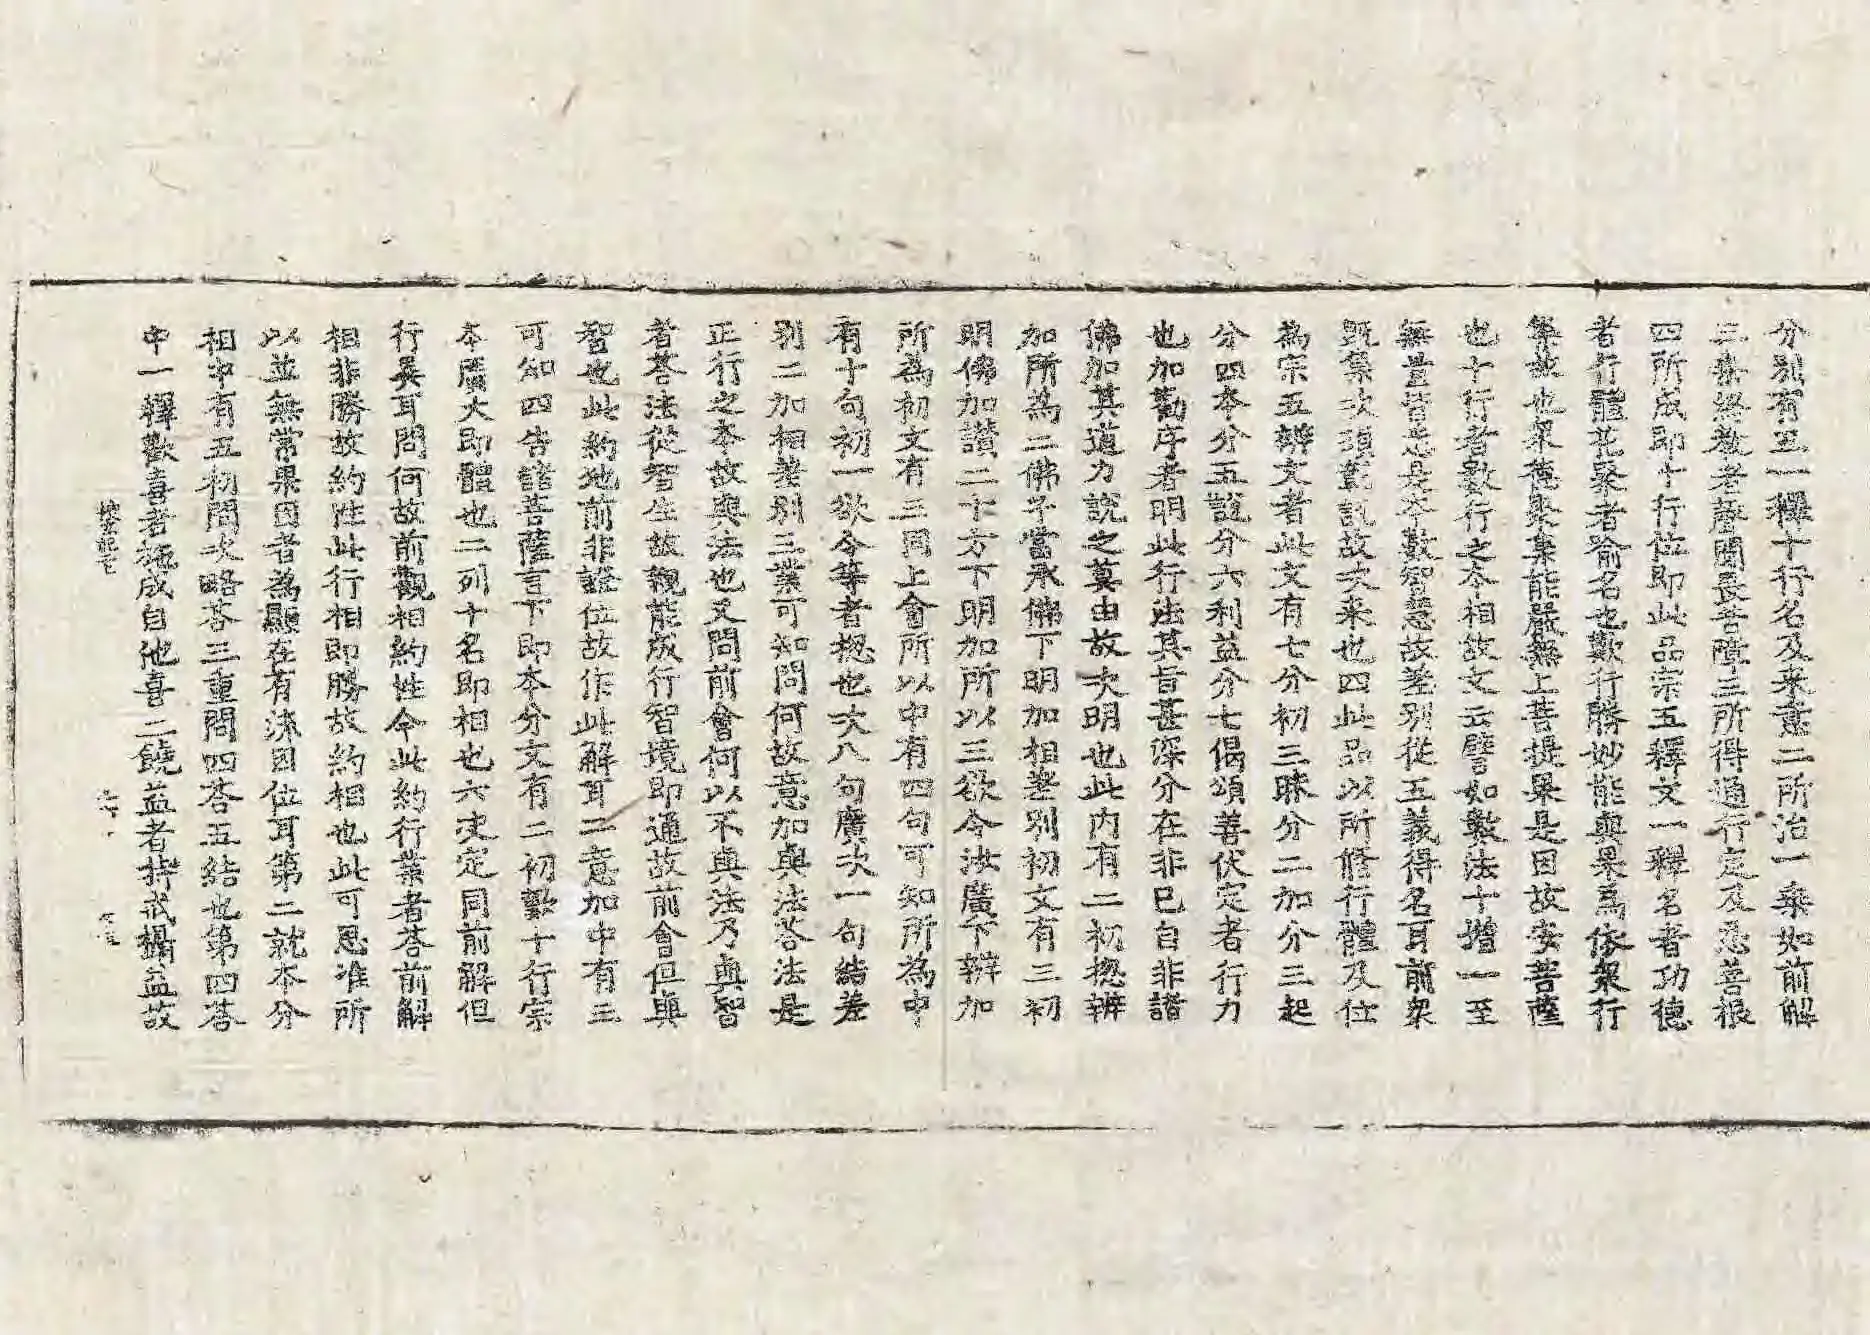 分別有五一釋十行名及来意二所治一乘如前解
三乘無教者聲聞畏苦障三所得通行定及忍善根
四所成即十行位即此品宗五釋文一釋名者功德
者行體花聚者喻名也歎行勝妙能與果爲依衆行
集故也衆德聚集能嚴無上菩提果是因故安菩薩
也十行者數行之本相故文云譬如數法十增一至
無量皆悉是本數智慧故差別從五義得名耳前衆
既集次須 說故次来也四此品以所修行體及位
為宗五辨文者此文有七分初三昧分二加分三起
分四本分五說分六利益分七偈頌善伏定者行力
也加勸序者明此行法其旨甚深分在非已自非諧
佛加其道力說之莫由故次明也此内有二初揔辨
加所為二佛子當承佛下明加相差別初文有三初
明佛加讃二十方下明加所以三欲令汝廣下辨加
所為初文有三同上會所以中有四句可知所為中
有十句初一欲令等者揔也次八句廣次一句結差
別二加相差別三業可知問何故意加與法答法是
正行之本故與法也又問前會何以不與法乃與智
者答法從智生故觀能成行智境即通故前會但與
智也此約地前非證位故作此解耳二意加中有三
可知四告諸菩薩言下即本分文有二初歎十行宗
本廣大即體也二列十名即相也六决定同前解但
行異耳問何故前觀相約性今此約行業者答前解
相非勝故約性此行相即勝故約相也此可思准所
以並無常果因者為顯在有流因位耳第二就本分
相中有五初問次略答三重問四答五結也第四答
中一釋歡喜者施成自他喜二饒益者持戒攝益故